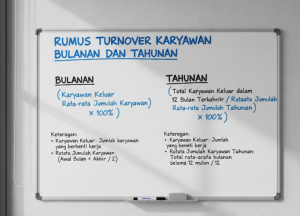 RUMUS TURNOVER KARYAWAN
BULANAN DAN TAHUNAN
BULANAN
(Karyawan Keluar
Rata-rata Jumlah Karyawan)
× 100%)
Keteragan:
• Karyawan Keluar: Jumlah karyawan
yang berhenti kerja
• Ratata Jumlah Karyawan:
(Awal Bulan + Akhir / 2)
TAHUNAN
(Total Karyawan Keluar dalam
12 Bulan Terkahvitr / Rataata Jumulah
Rata-rata Jumulah Tahunan)
× 100%)
Keteragan:
• Karyawan Keluar: Jumlah
yang bereti kerja
• Ratata Jumulah Karyawan Tahunan:
Total rata-arata bulanan
selama 12 mulon / 12